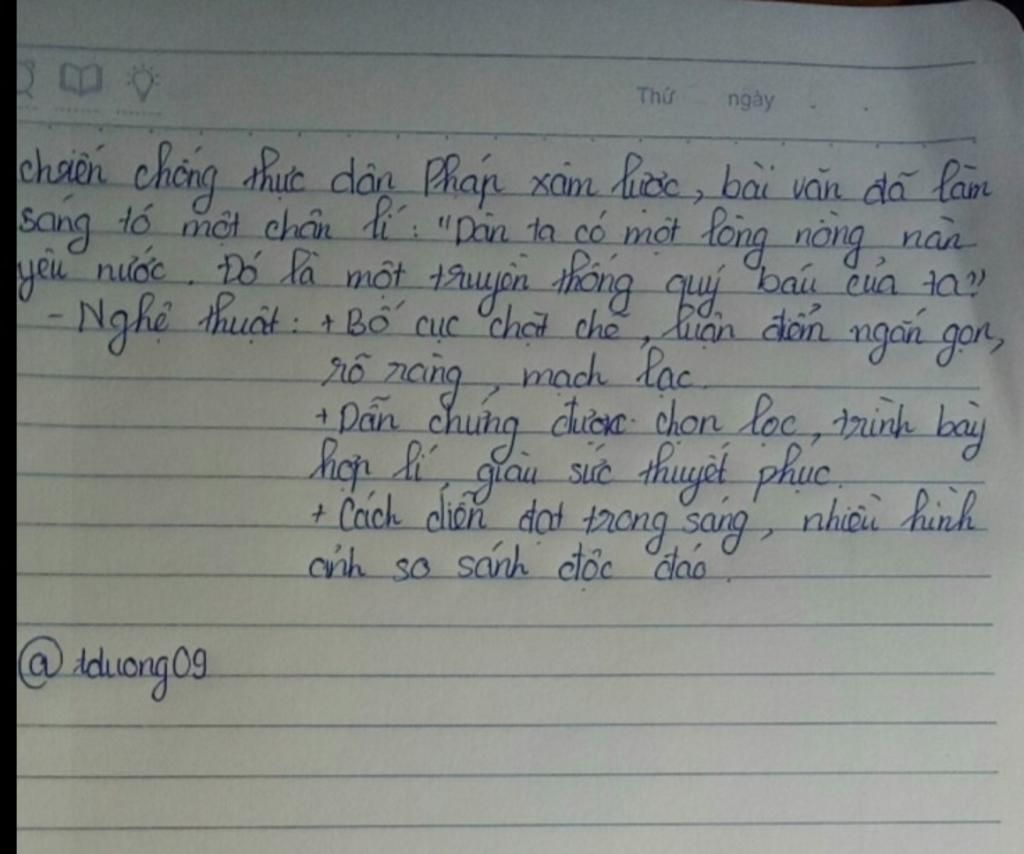 Thứ ngày . .
chiến chống thực dân Pháp xâm lược, bài văn đã làm
sáng tỏ một chân lí: "Dân ta có một lòng nồng nàn
yêu nước. Đó là một truyền thống quý báu của ta"
- Nghệ thuật: + Bố cục chặt chẽ, luận điểm ngắn gọn,
rõ ràng, mạch lạc.
+ Dẫn chứng được chọn lọc, trình bày
hợp lí, giàu sức thuyết phục.
+ Cách diễn đạt trong sáng, nhiều hình
ảnh so sánh độc đáo.
@tduong09